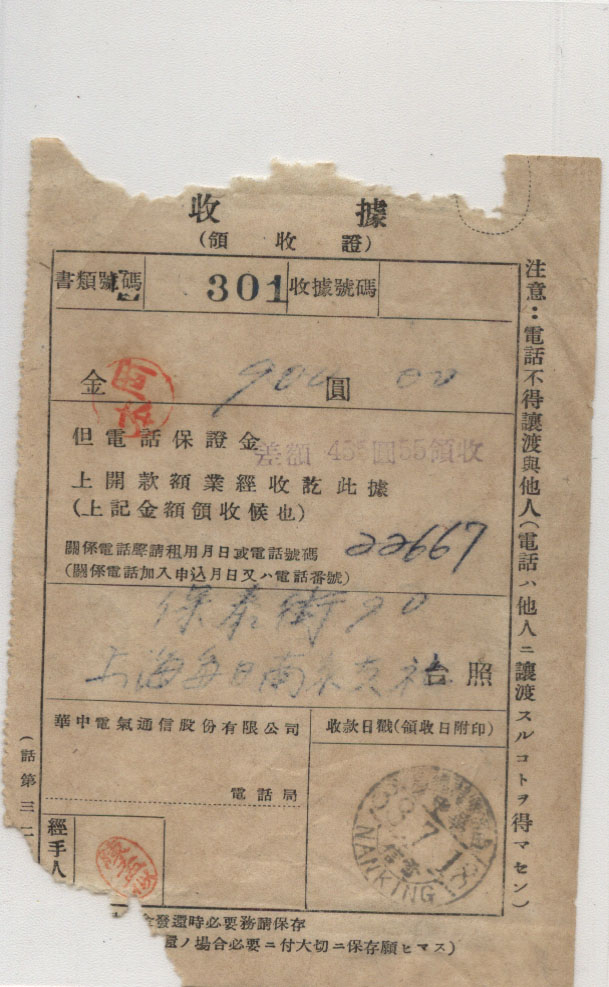 收據
(領收證)
書類號碼 301 收據號碼
金 900 圓 00
但電話保證金
差額 435圓55領收
上開款額業經收訖此據
(上記金額領收候也)
關係電話聲請租用月日或電話號碼
(關係電話加入申込月日又ハ電話番號)
22667
保泰街90
上海每日南京支社 台照
華中電氣通信股份有限公司
電話局
收款日戳(領收日附印)
7 18
NANKING
經手人
發還時必要務請保存
ノ場合必要ニ付大切ニ保存願ヒマス)
注意：電話不得讓渡與他人(電話ハ他人ニ讓渡スルコトヲ得マセン)
(話第三二